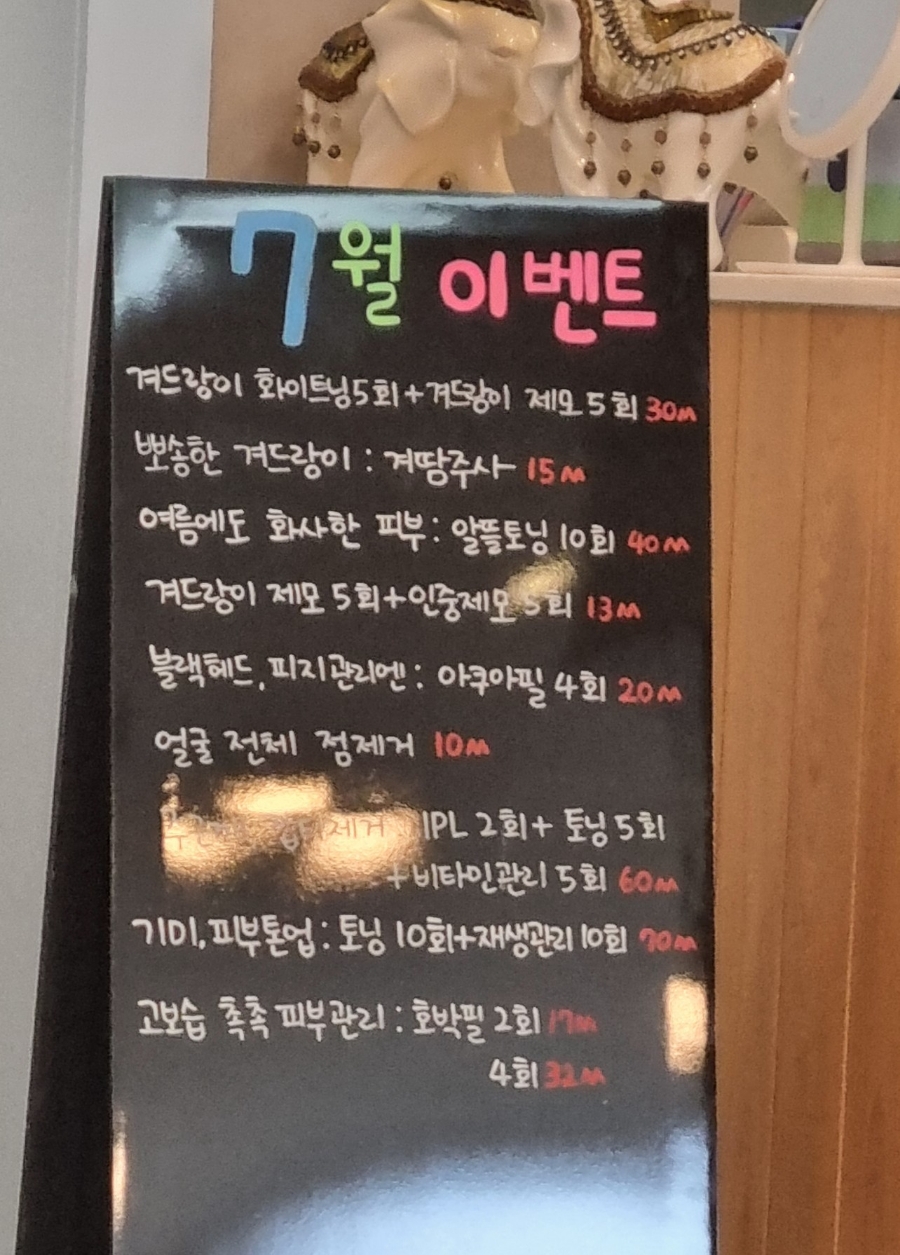 7월 이벤트
겨드랑이 화이트닝5회+겨드랑이 제모 5회 30m
뽀송한 겨드랑이 : 겨땀주사 15m
여름에도 화사한 피부 : 알뜰토닝 10회 40m
겨드랑이 제모 5회+인중제모 5회 13m
블랙헤드, 피지관리엔 : 아쿠아필 4회 20m
얼굴 전체 점제거 10m
제거 IPL 2회+ 토닝 5회
+비타민관리 5회 60m
기미, 피부톤업 : 토닝 10회+재생관리 10회 70m
고보습 촉촉 피부관리 : 호박필 2회 17m
4회 32m